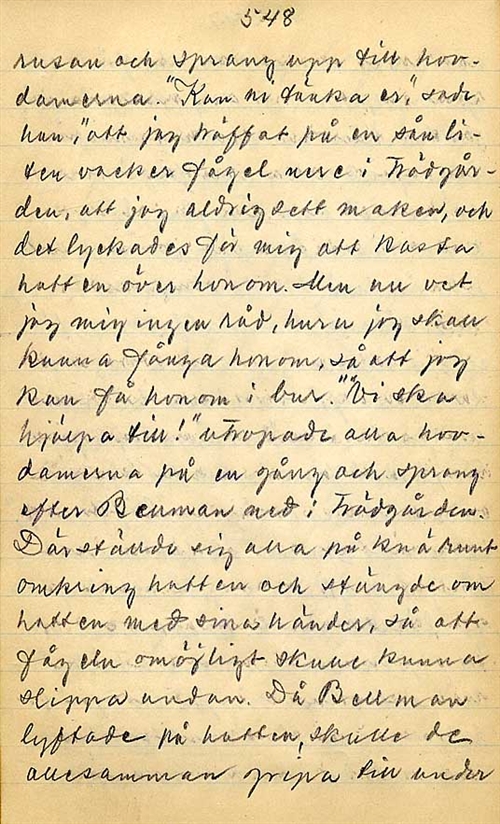 548
rusan och sprang upp till hov-
damerna. "Kan ni tänka er," sade
han, "att jag träffat på en sån li-
ten vacker fågel nere i trädgår-
den, att jag aldrig sett maken, och
det lyckades för mig att kasta
hatten över honom. Men nu vet
jag mig ingen råd, huru jag skall
kunna fånga honom, så att jag
kan få honom i bur." "Vi ska
hjälpa till!" utropade alla hov-
damerna på en gång och sprang
efter Bellman ned i trädgården.
Där ställde sig alla på knä runt
omkring hatten och stängde om
hatten med sina händer, så att
fågeln omöjligt skulle kunna
slippa undan. Då Bellman
lyftade på hatten, skulle de
allesamman gripa till under